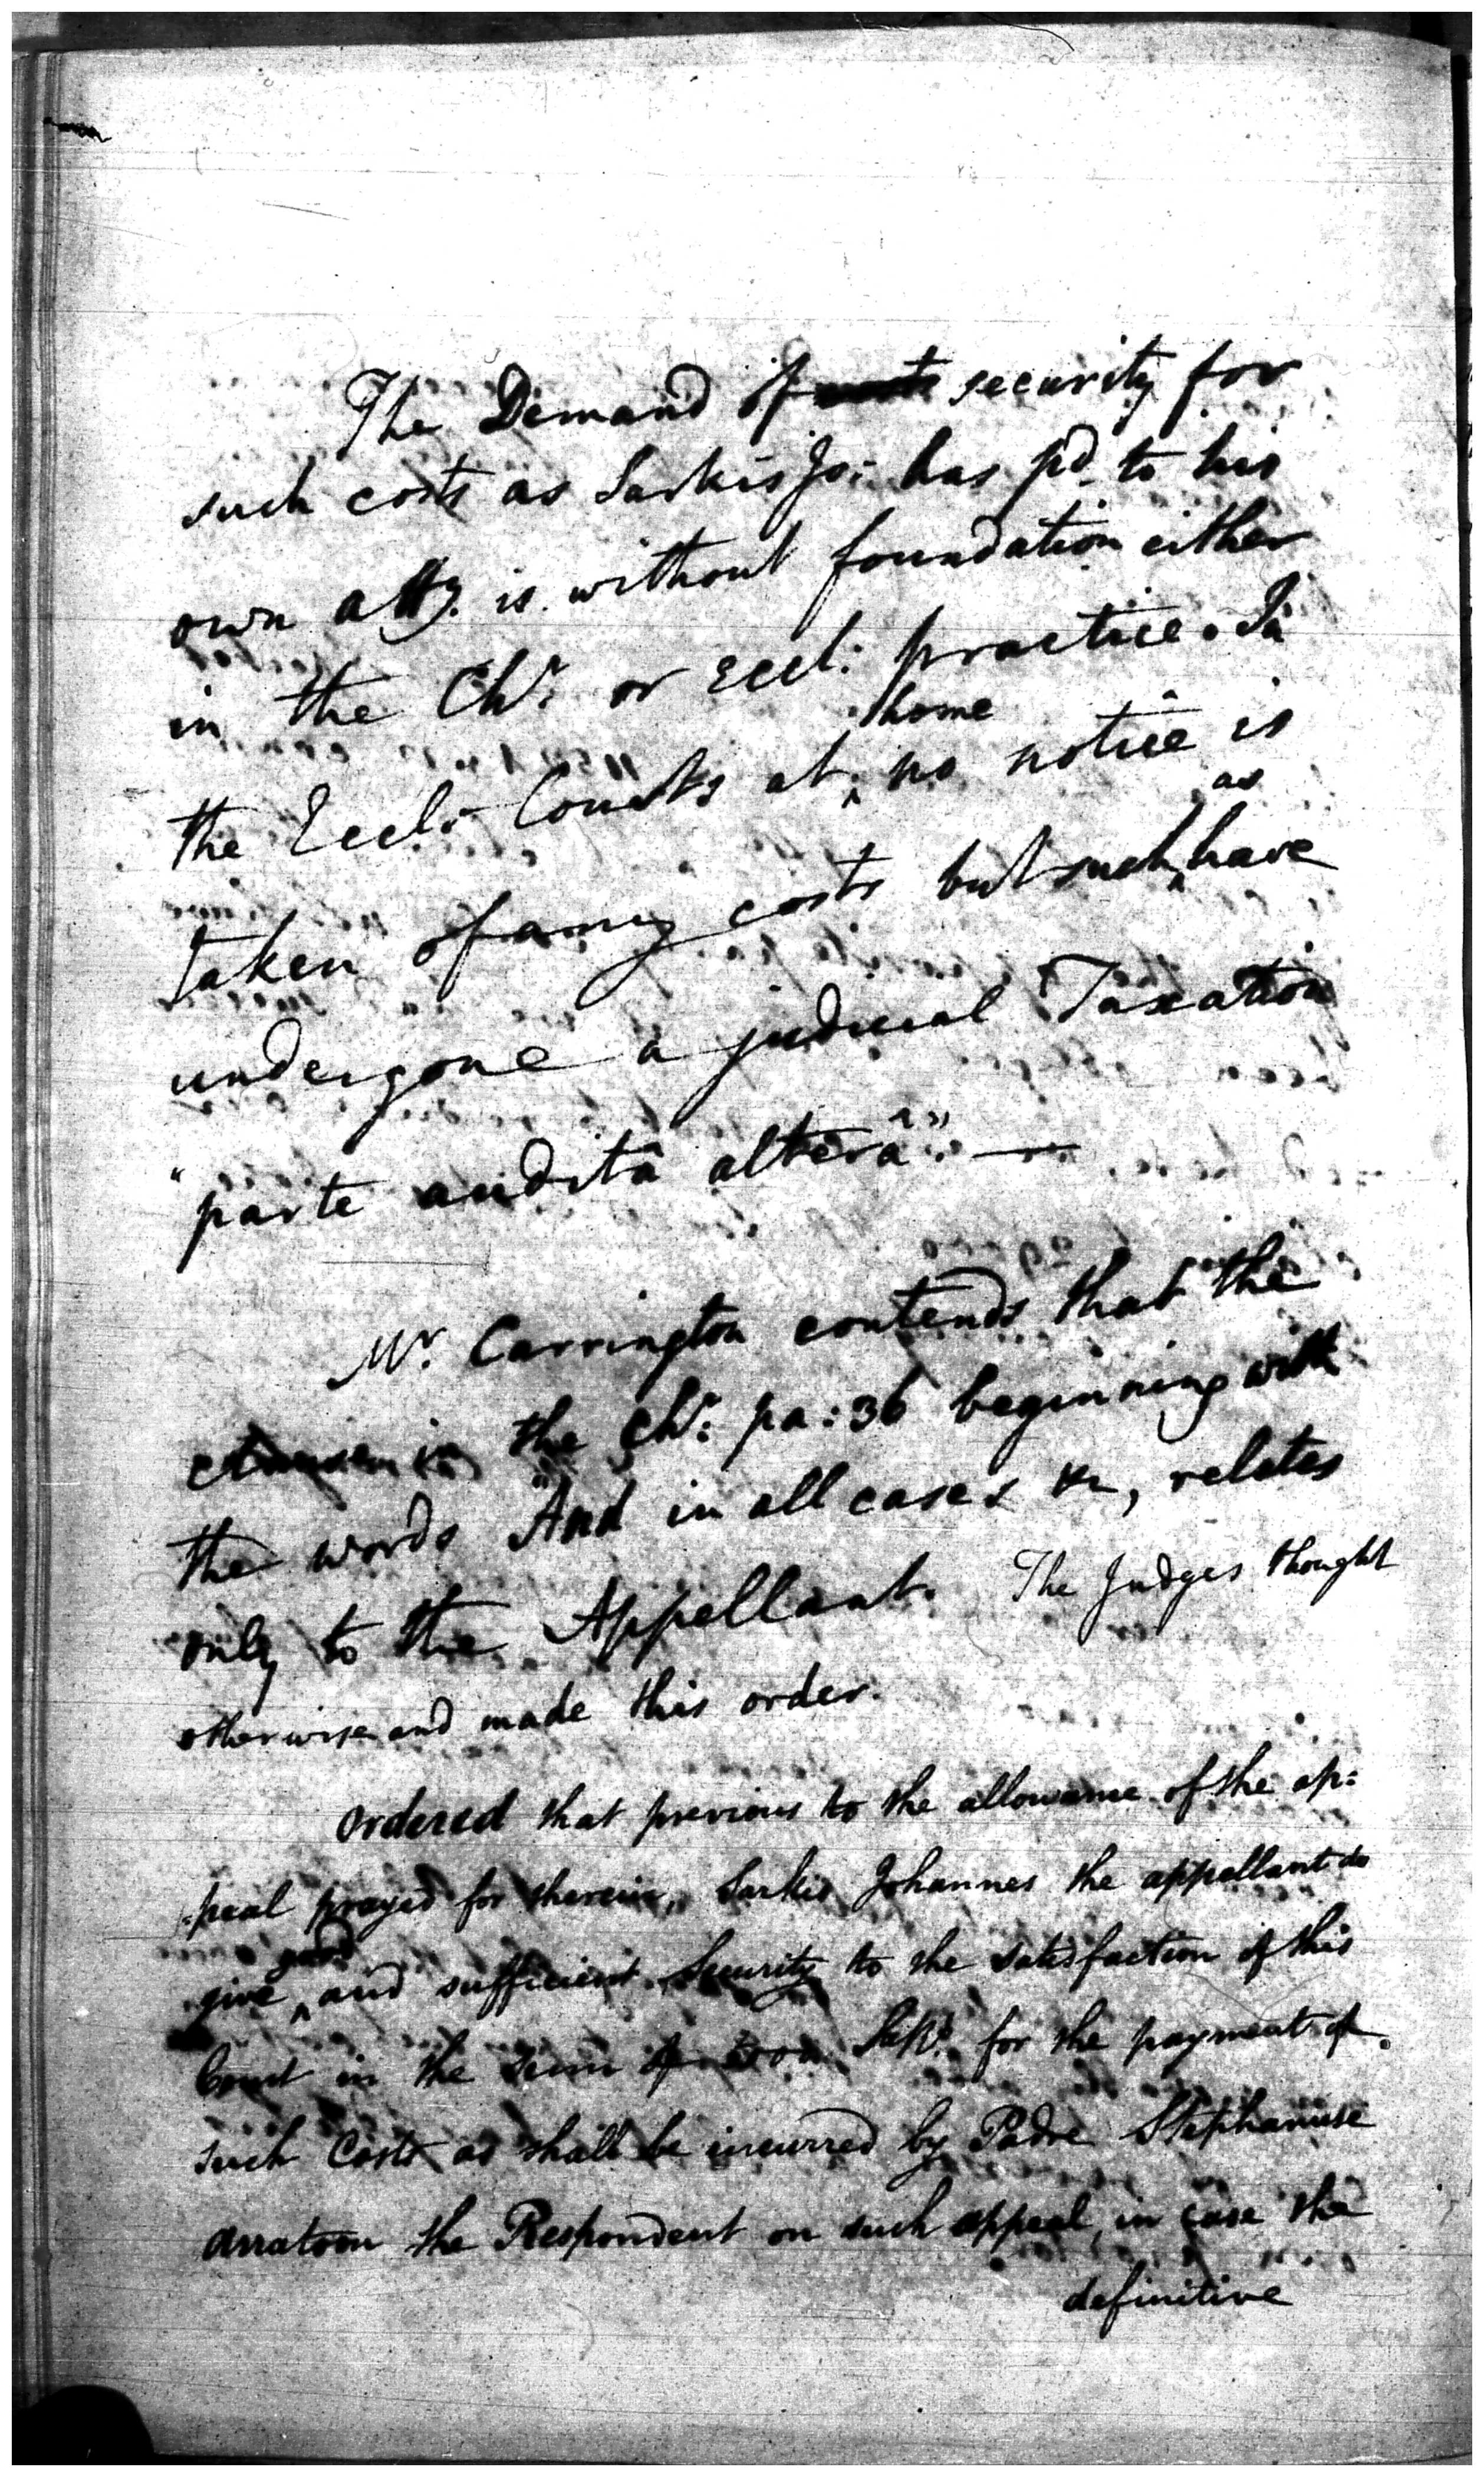 The Demand of security for
such costs as Sarkis Js: has pd. to his
own atty. is without foundation either
in the Chr: or Eccl: practice. In
the Eccl: Courts at home no notice is
taken of any costs but such as have
undergone a judicial Taxation
"parte auditâ alterâ". —
Mr. Carrington contends that the
in the Chr: pa: 36 beginning with
the words "And in all cases &c, relates
only to the Appellant. The Judges thought
otherwise and made this order.
Ordered that previous to the allowance of the ap=
=peal prayed for therein, Sarkis Johannes the appellant do
give good and sufficient Security to the satisfaction of this
Court in the sum of for the payment of
such Costs as shall be incurred by Padre Stephanuse
Arratoon the Respondent on such appeal, in case the
definitive